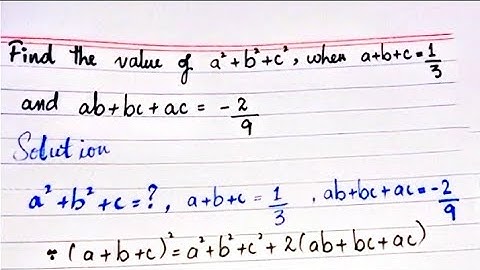 Find the value of a²+b²+c², when a+b+c = 1/3
and ab+bc+ac = -2/9
Solution
a²+b²+c = ?, a+b+c = 1/3, ab+bc+ac = -2/9
∵ (a+b+c)² = a²+b²+c²+2(ab+bc+ac)